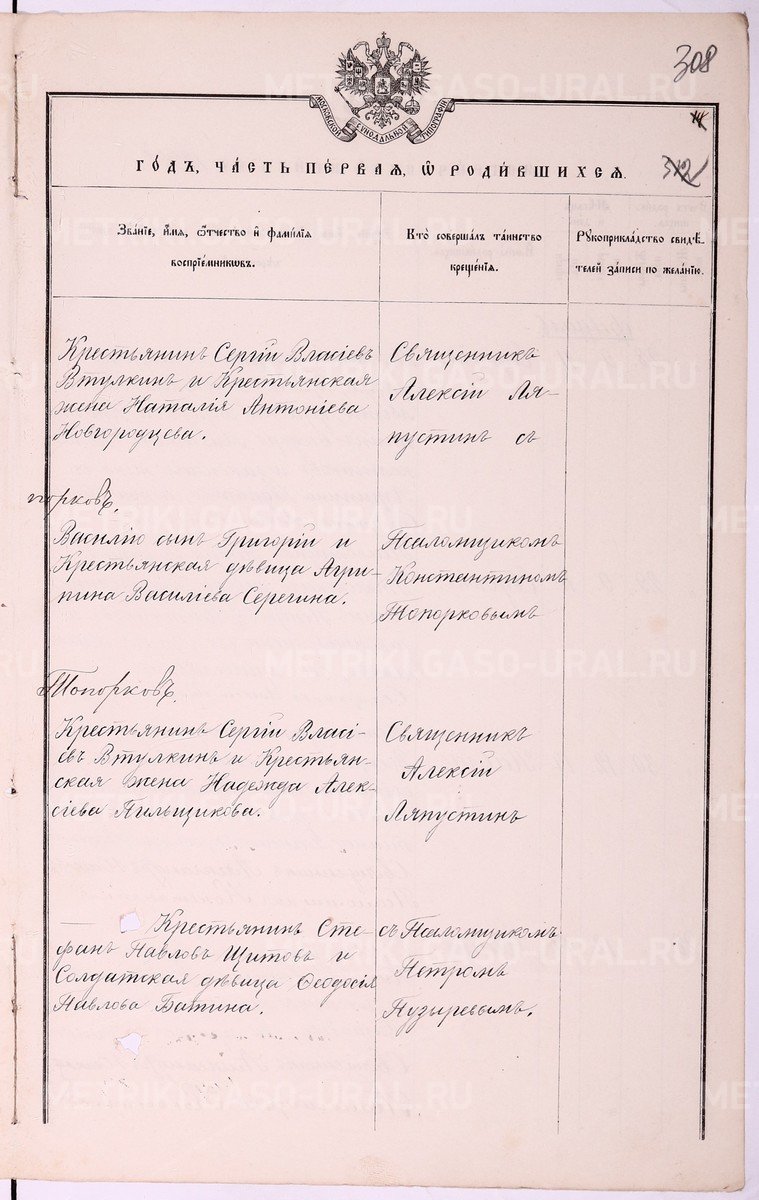 308
МОСКОВСКОЙ СѴНОДАЛЬНОЙ ТИПОГРАФІИ
14
312
ГО́ДЪ, ЧА́СТЬ ПЕ́РВАЯ, Ѡ҆ РОДИ́ВШИХСЯ.
Зва́ніе, и҆́мя, ѻ҆́тчество и҆ фами́лїѧ
воспрїе́мникѡвъ.
Кто̀ соверша́лъ та́инство
креще́нїѧ.
Рꙋкоприкла́дство свидѣ́-
телей за́писи по жела́нїю.
Крестьянинъ Сергій Власіевъ
Втулкинъ и Крестьянская
жена Наталія Антоніева
Новгородцева.
Священникъ
Алексій Ля-
пустинъ съ
порковъ.
Василію сынъ Григорій и
Крестьянская дѣвица Агри-
пина Василіева Серегина.
Псаломщикомъ
Константиномъ
Топорковымъ
Топорковъ.
Крестьянинъ Сергій Власі-
евъ Втулкинъ и Крестьян-
ская жена Надежда Алек-
сіева Пильщикова.
Священникъ
Алексій
Ляпустинъ
Крестьянинъ Сте-
фанъ Павловъ Щитовъ и
Солдатская дѣвица Ѳеодосія
Павлова Батина.
съ Псаломщикомъ
Петромъ
Пузыревымъ.
METRIKI.GASO-URAL.RU